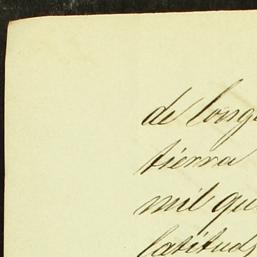 de long
tierra
mil qu
latitud